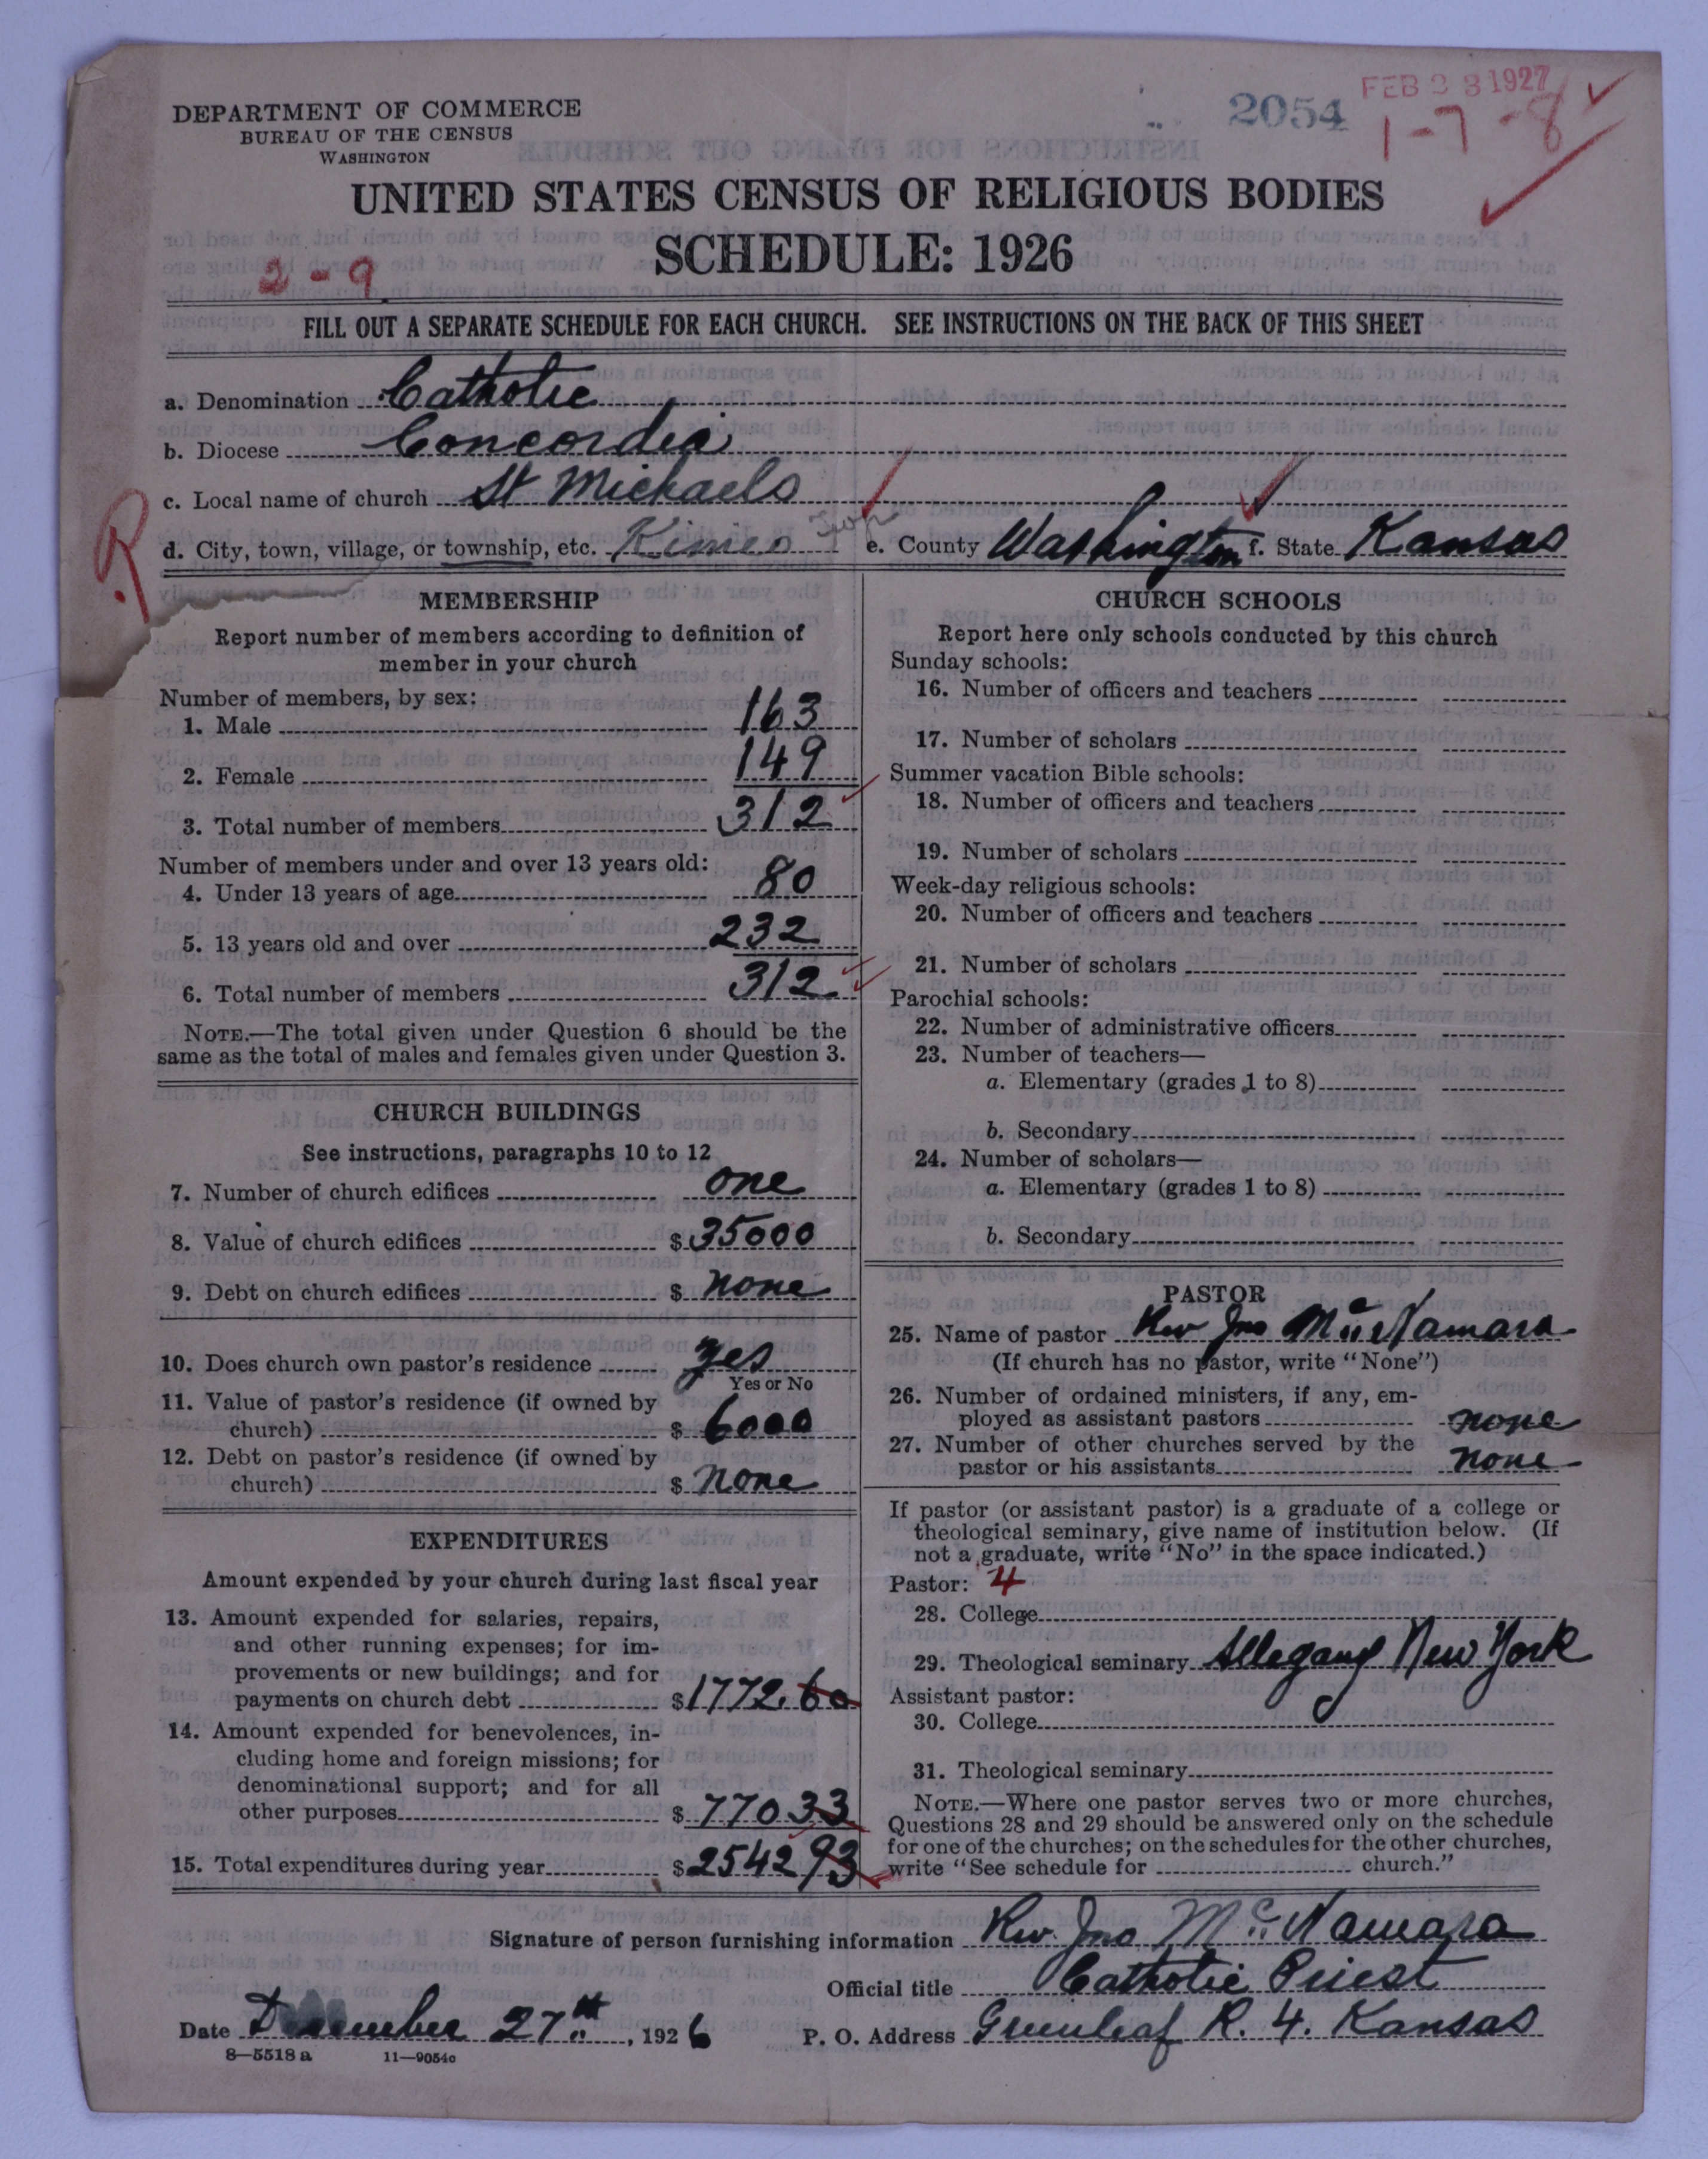 DEPARTMENT OF COMMERCE
BUREAU OF THE CENSUS
WASHINGTON
2054
FEB 23 1927
1-7-8
UNITED STATES CENSUS OF RELIGIOUS BODIES
SCHEDULE: 1926
2-9
FILL OUT A SEPARATE SCHEDULE FOR EACH CHURCH. SEE INSTRUCTIONS ON THE BACK OF THIS SHEET
a. Denomination Catholic
b. Diocese Concordia
c. Local name of church St Michaels
d. City, town, village, or township, etc. Kimeo Twp e. County Washington f. State Kansas
MEMBERSHIP
Report number of members according to definition of
member in your church
Number of members, by sex:
1. Male 163
2. Female 149
3. Total number of members 312
Number of members under and over 13 years old:
4. Under 13 years of age 80
5. 13 years old and over 232
6. Total number of members 312
NOTE.—The total given under Question 6 should be the
same as the total of males and females given under Question 3.
CHURCH BUILDINGS
See instructions, paragraphs 10 to 12
7. Number of church edifices one
8. Value of church edifices $ 35000
9. Debt on church edifices $ none
10. Does church own pastor's residence yes
Yes or No
11. Value of pastor's residence (if owned by
church) $ 6000
12. Debt on pastor's residence (if owned by
church) $ none
EXPENDITURES
Amount expended by your church during last fiscal year
13. Amount expended for salaries, repairs,
and other running expenses; for im-
provements or new buildings; and for
payments on church debt $ 1772.60
14. Amount expended for benevolences, in-
cluding home and foreign missions; for
denominational support; and for all
other purposes $ 770 33
15. Total expenditures during year $ 2542 93
CHURCH SCHOOLS
Report here only schools conducted by this church
Sunday schools:
16. Number of officers and teachers
17. Number of scholars
Summer vacation Bible schools:
18. Number of officers and teachers
19. Number of scholars
Week-day religious schools:
20. Number of officers and teachers
21. Number of scholars
Parochial schools:
22. Number of administrative officers
23. Number of teachers—
a. Elementary (grades 1 to 8)
b. Secondary
24. Number of scholars—
a. Elementary (grades 1 to 8)
b. Secondary
PASTOR
25. Name of pastor Rev Jno McNamara
(If church has no pastor, write "None")
26. Number of ordained ministers, if any, em-
ployed as assistant pastors none
27. Number of other churches served by the
pastor or his assistants none
If pastor (or assistant pastor) is a graduate of a college or
theological seminary, give name of institution below. (If
not a graduate, write "No" in the space indicated.)
Pastor: 4
28. College
29. Theological seminary Allegany New York
Assistant pastor:
30. College
31. Theological seminary
NOTE.—Where one pastor serves two or more churches,
Questions 28 and 29 should be answered only on the schedule
for one of the churches; on the schedules for the other churches,
write "See schedule for church."
Signature of person furnishing information Rev. Jno McNamara
Official title Catholic Priest
Date December 27th, 1926 P. O. Address Greenleaf R. 4. Kansas
8—5518 a 11—9054c